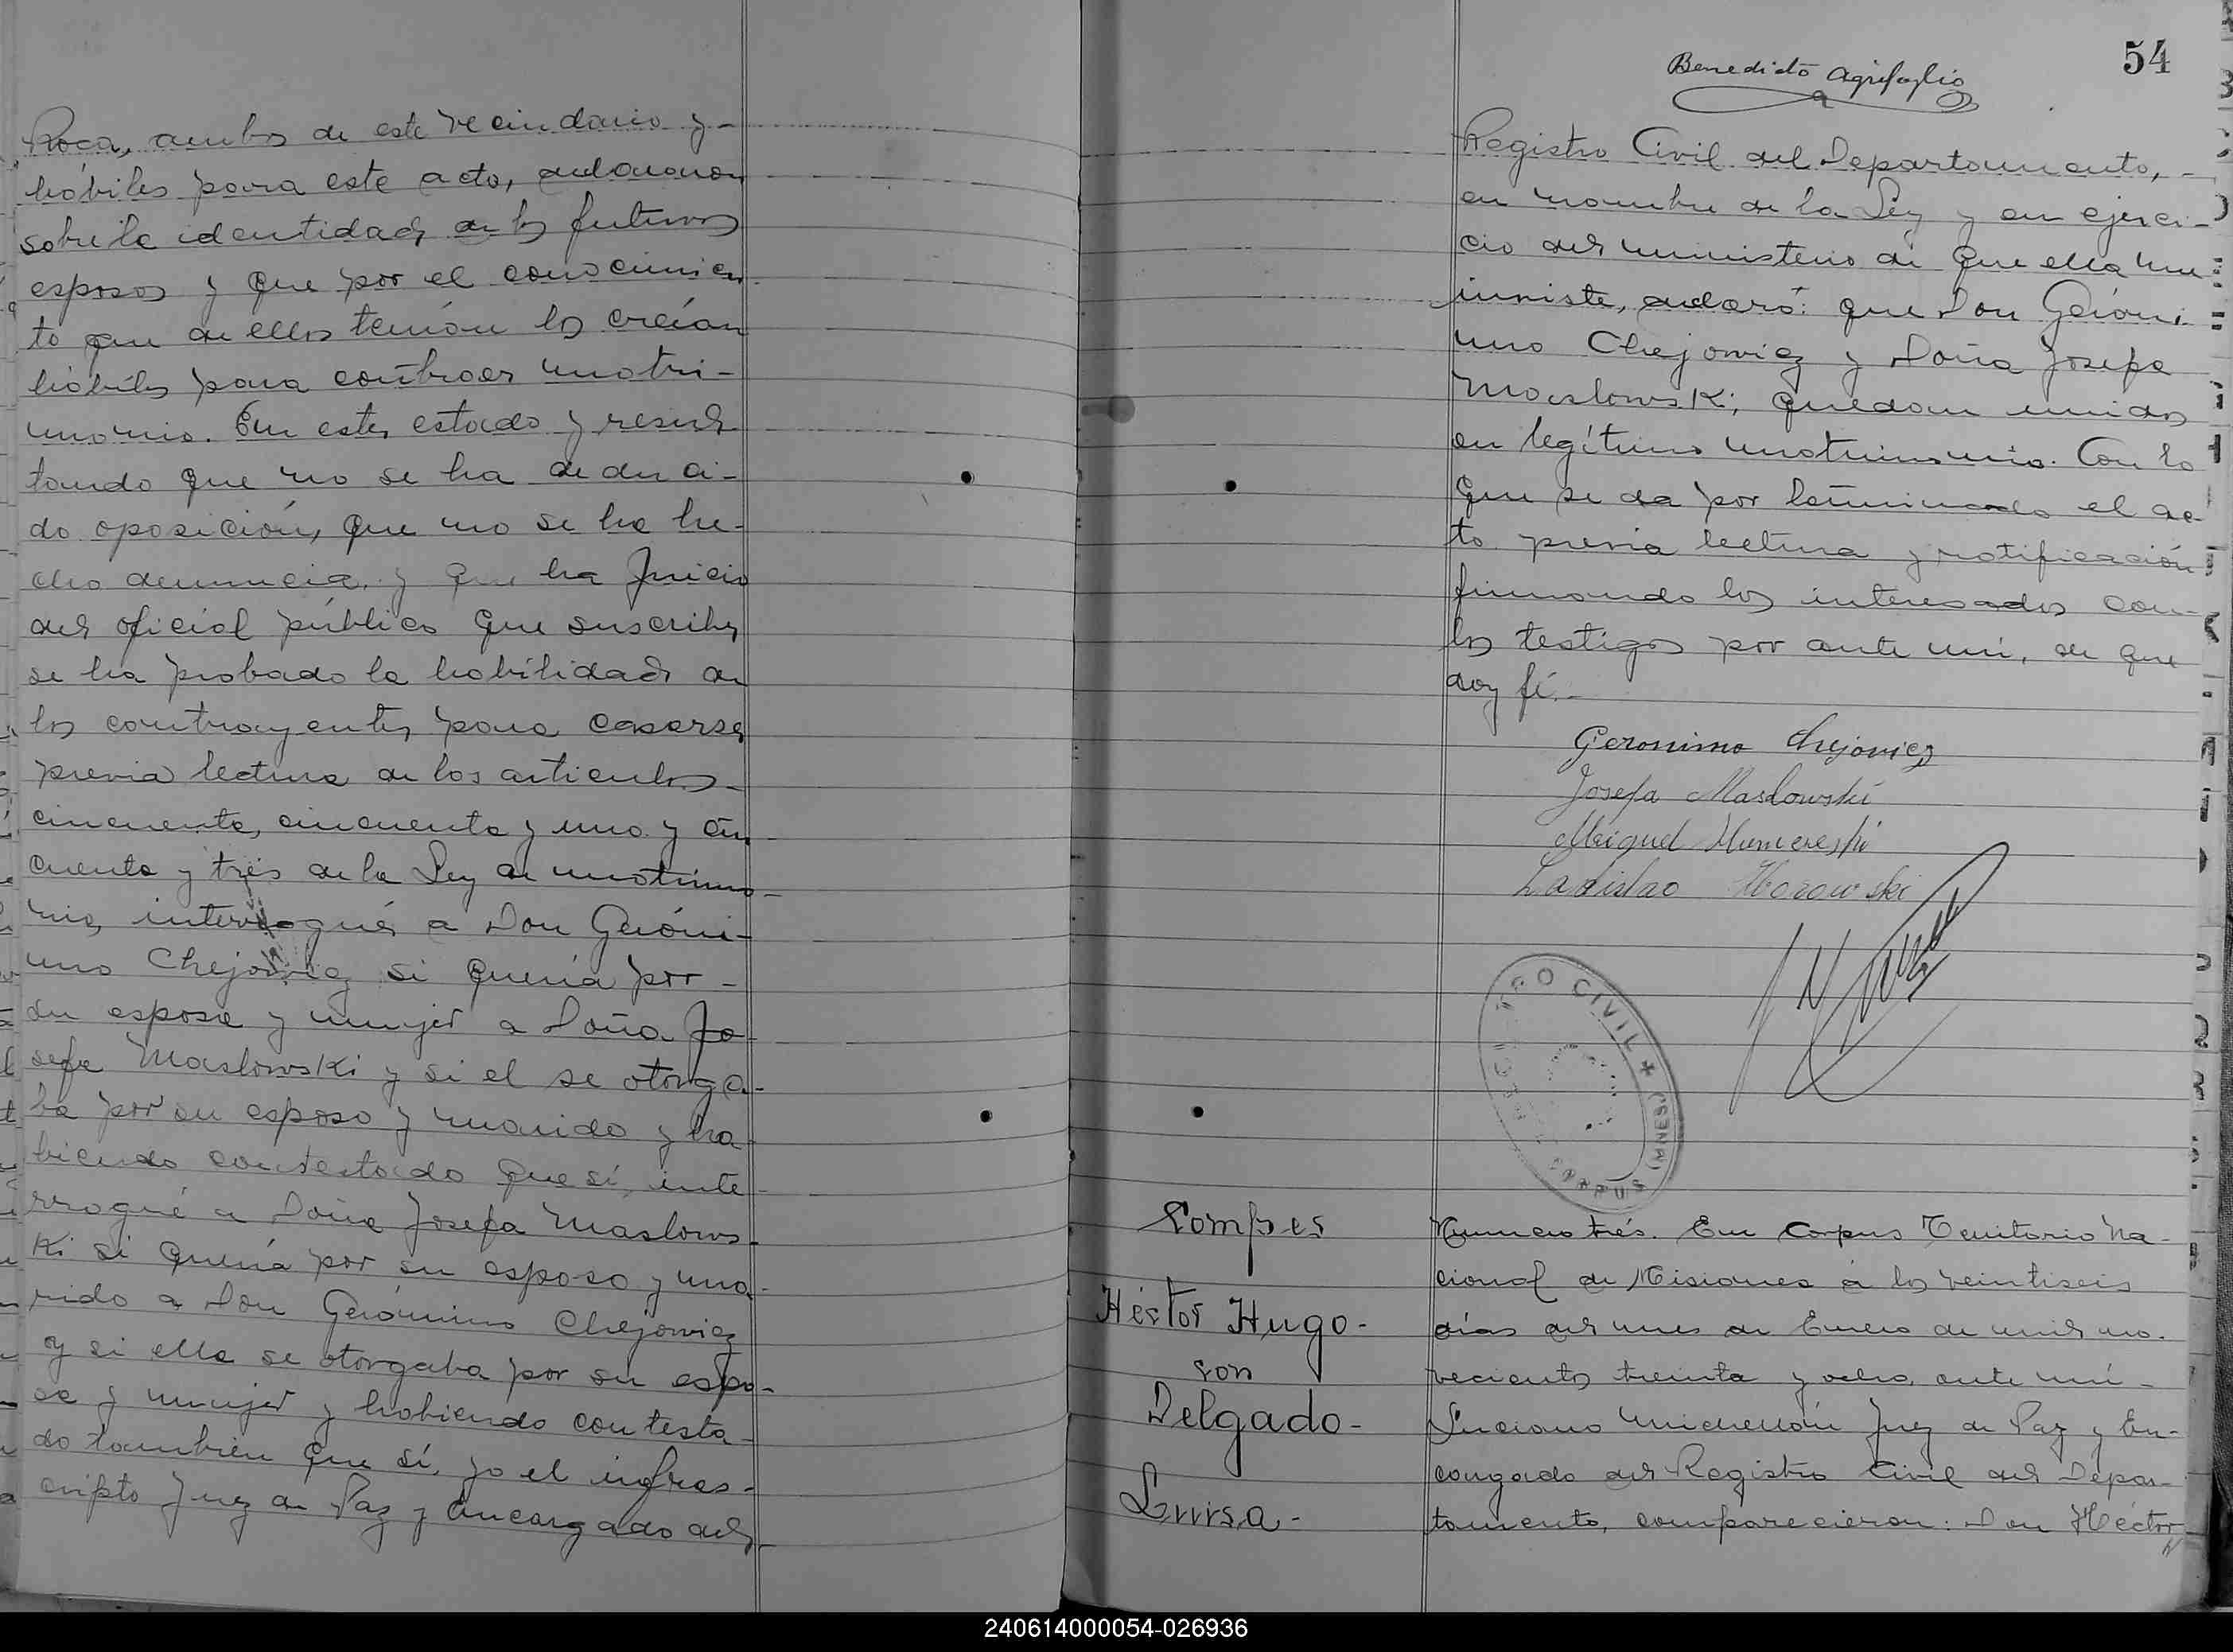 Roca, ambos de este vecindario y-
hábiles para este acto, declararon
sobre la identidad de los futuros
esposos y que por el conocimien
to que de ellos tenían los creían
hábiles para contraer matri-
monio. En este estado y resul
tando que no se ha deduci-
do oposición, que no se ha he-
cho denuncia y que ha juicio
del oficial público que suscribe,
se ha probado la habilidad de
los contrayentes para casarse,
previa lectura de los articulos-
cincuenta, cincuenta y uno y cin
cuenta y trés de la Ley de matrimo-
nio, interrogué a Don Geróni-
mo Chejowicz si quería por-
su esposa y mujer a Doña Jo-
sefa Maslowski y si el se otorga-
ba por su esposo y marido y ha-
biendo contestado que sí, inte-
rrogué a Doña Josefa Maslows-
Ki si quería por su esposo y ma-
rido a Don Gerónimo Chejowicz
y si ella se otorgaba por su espo-
sa y mujer y habiendo contesta-
do también que sí, yo el infras-
cripto Juez de Paz y Encargado del
Benedicto Agrifoglio
54
Registro Civil del Departamento,-
en nombre de la Ley y en ejerci-
cio del ministerio de que ella me
inviste, declaró: que Don Geróni-
mo Chejowicz y Doña Josefa
Maslowski, quedan unidos
en legítimo matrimonio. Con lo
que se da por terminado el ac-
to previa lectura y ratificación
firmando los interesados con-
los testigos por ante mí, de que
doy fé.-
Geronimo Chejovicz
Josefa Maslowski
Miguel
Ladislao
REGISTRO CIVIL + (MNES)
CORPUS
Compes
Héctor Hugo-
con
Delgado-
Luisa-
Número trés. En Corpus Territorio Na-
cional de Misiones á los veintiseis
días del mes de Enero de mil no-
vecientos treinta y ocho, ante mí-
Luciano Juez de Paz y En-
cargado del Registro Civil del Depar-
tamento, comparecieron: Don Héctor
240614000054-026936